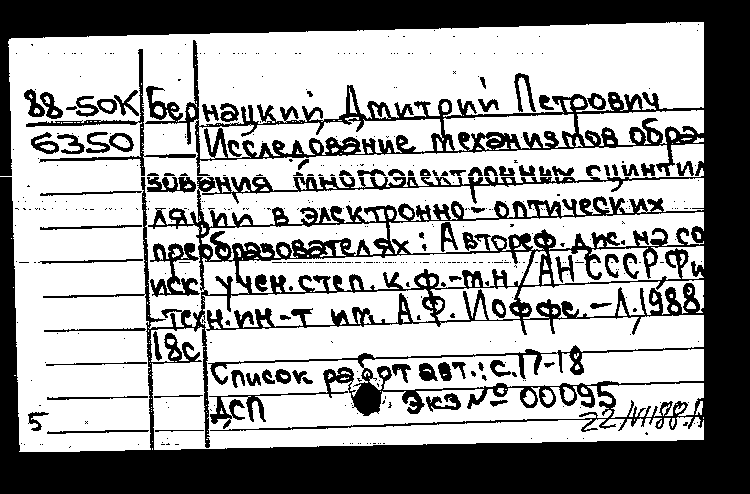 88-50К Бернацкий Дмитрий Петрович
6350 Исследование механизмов обра-
зования многоэлектронных сцинтил
ляции в электронно-оптических
преобразователях: Автореф. дис. на со
иск. учен. степ. к.ф.-м.н. /АН СССР, Фи
-техн. ин-т им. А.Ф. Иоффе. - Л., 1988.
18с
Список работ авт.: с.17-18
ДСП Экз № 00095
5 22/VII88.